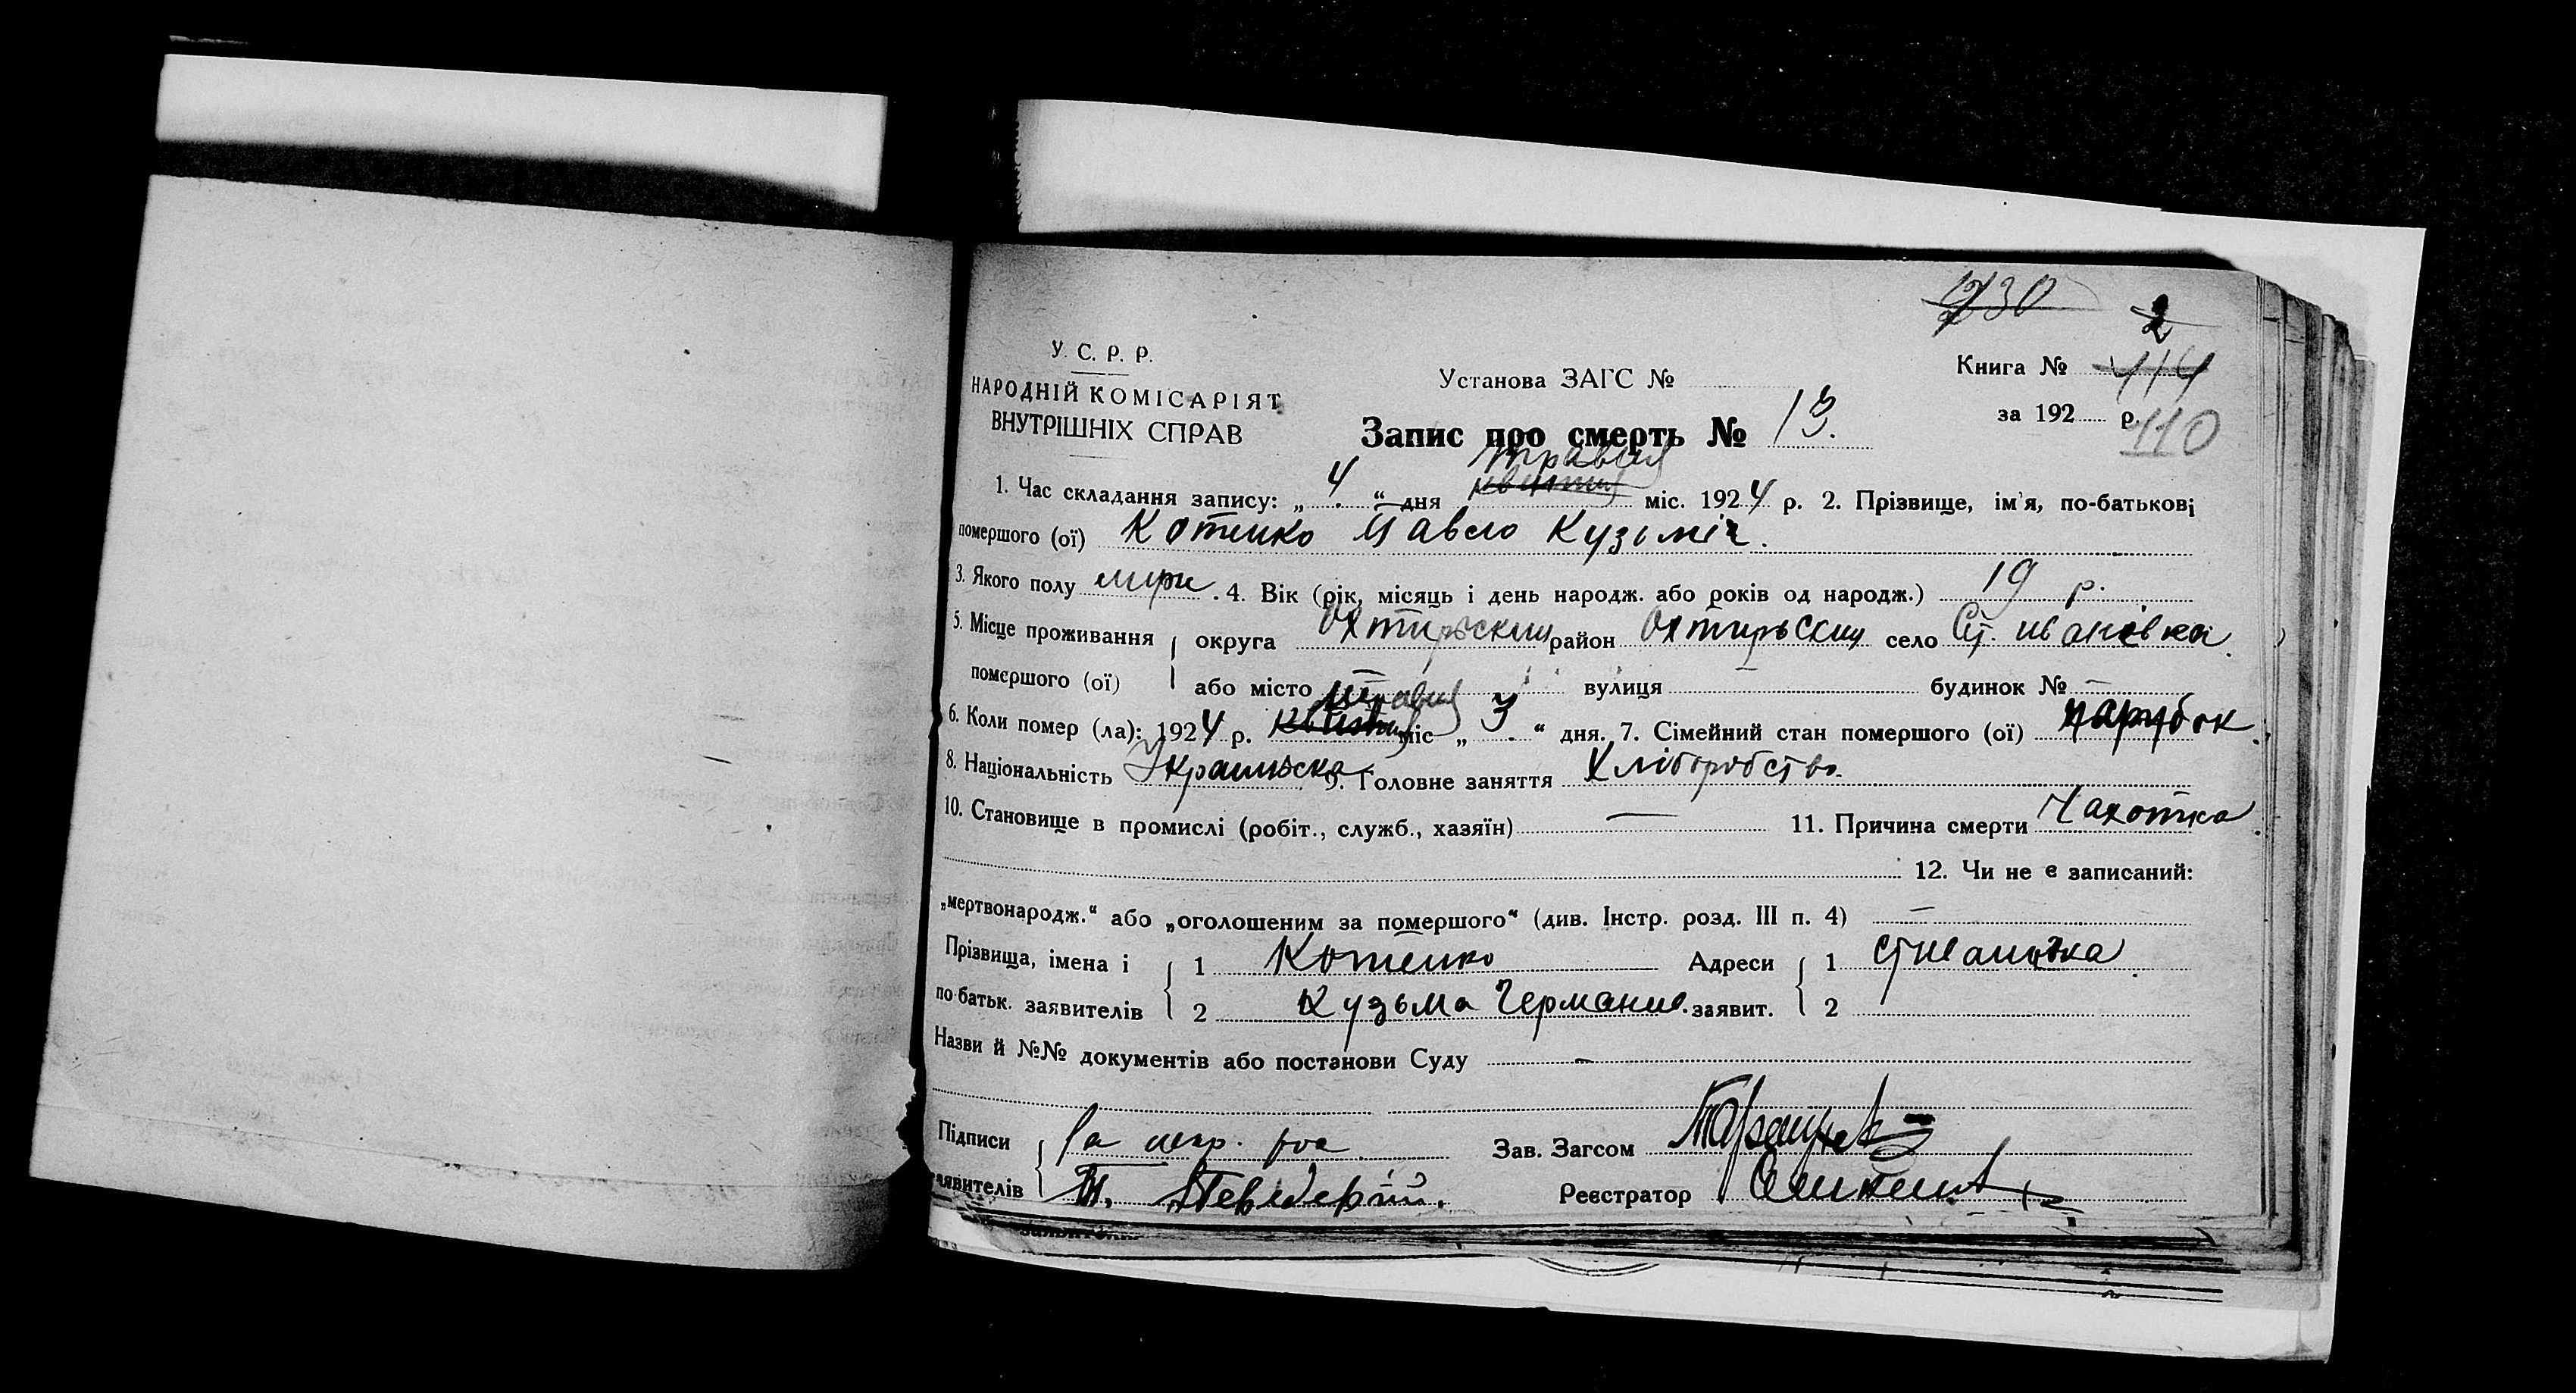 230
2
У. С. Р. Р.
НАРОДНІЙ КОМІСАРІЯТ
ВНУТРІШНІХ СПРАВ
Установа ЗАГС №
Книга № 114
за 192 р. 110
Запис про смерть № 13.
травня
1. Час складання запису: „ 4 “ дня квітня міс. 1924 р. 2. Прізвище, ім'я, по-батькові
помершого (ої) Котенко Павло Кузьміч.
3. Якого полу . 4. Вік (рік, місяць і день народж. або років од народж.) 19 р.
5. Місце проживання округа Охтирьский район Охтирьский село Ст. Івановка
помершого (ої) або місто вулиця будинок № —
травня
6. Коли помер (ла): 1924 р. квітня міс „ 3 “ дня. 7. Сімейний стан помершого (ої) парубок.
8. Національність Українска 9. Головне заняття Хліборобство
10. Становище в промислі (робіт., служб., хазяїн) — 11. Причина смерти Чахотка.
12. Чи не є записаний:
„мертвонародж.“ або „оголошеним за помершого“ (див. Інстр. розд. III п. 4) —
Прізвища, імена і 1 Котенко Адреси 1 Стивановка
по-батьк. заявителів 2 Кузьма Германив. заявит. 2
Назви й №№ документів або постанови Суду —
Підписи За негр. рос. Зав. Загсом
заявителів Реєстратор
заявителів